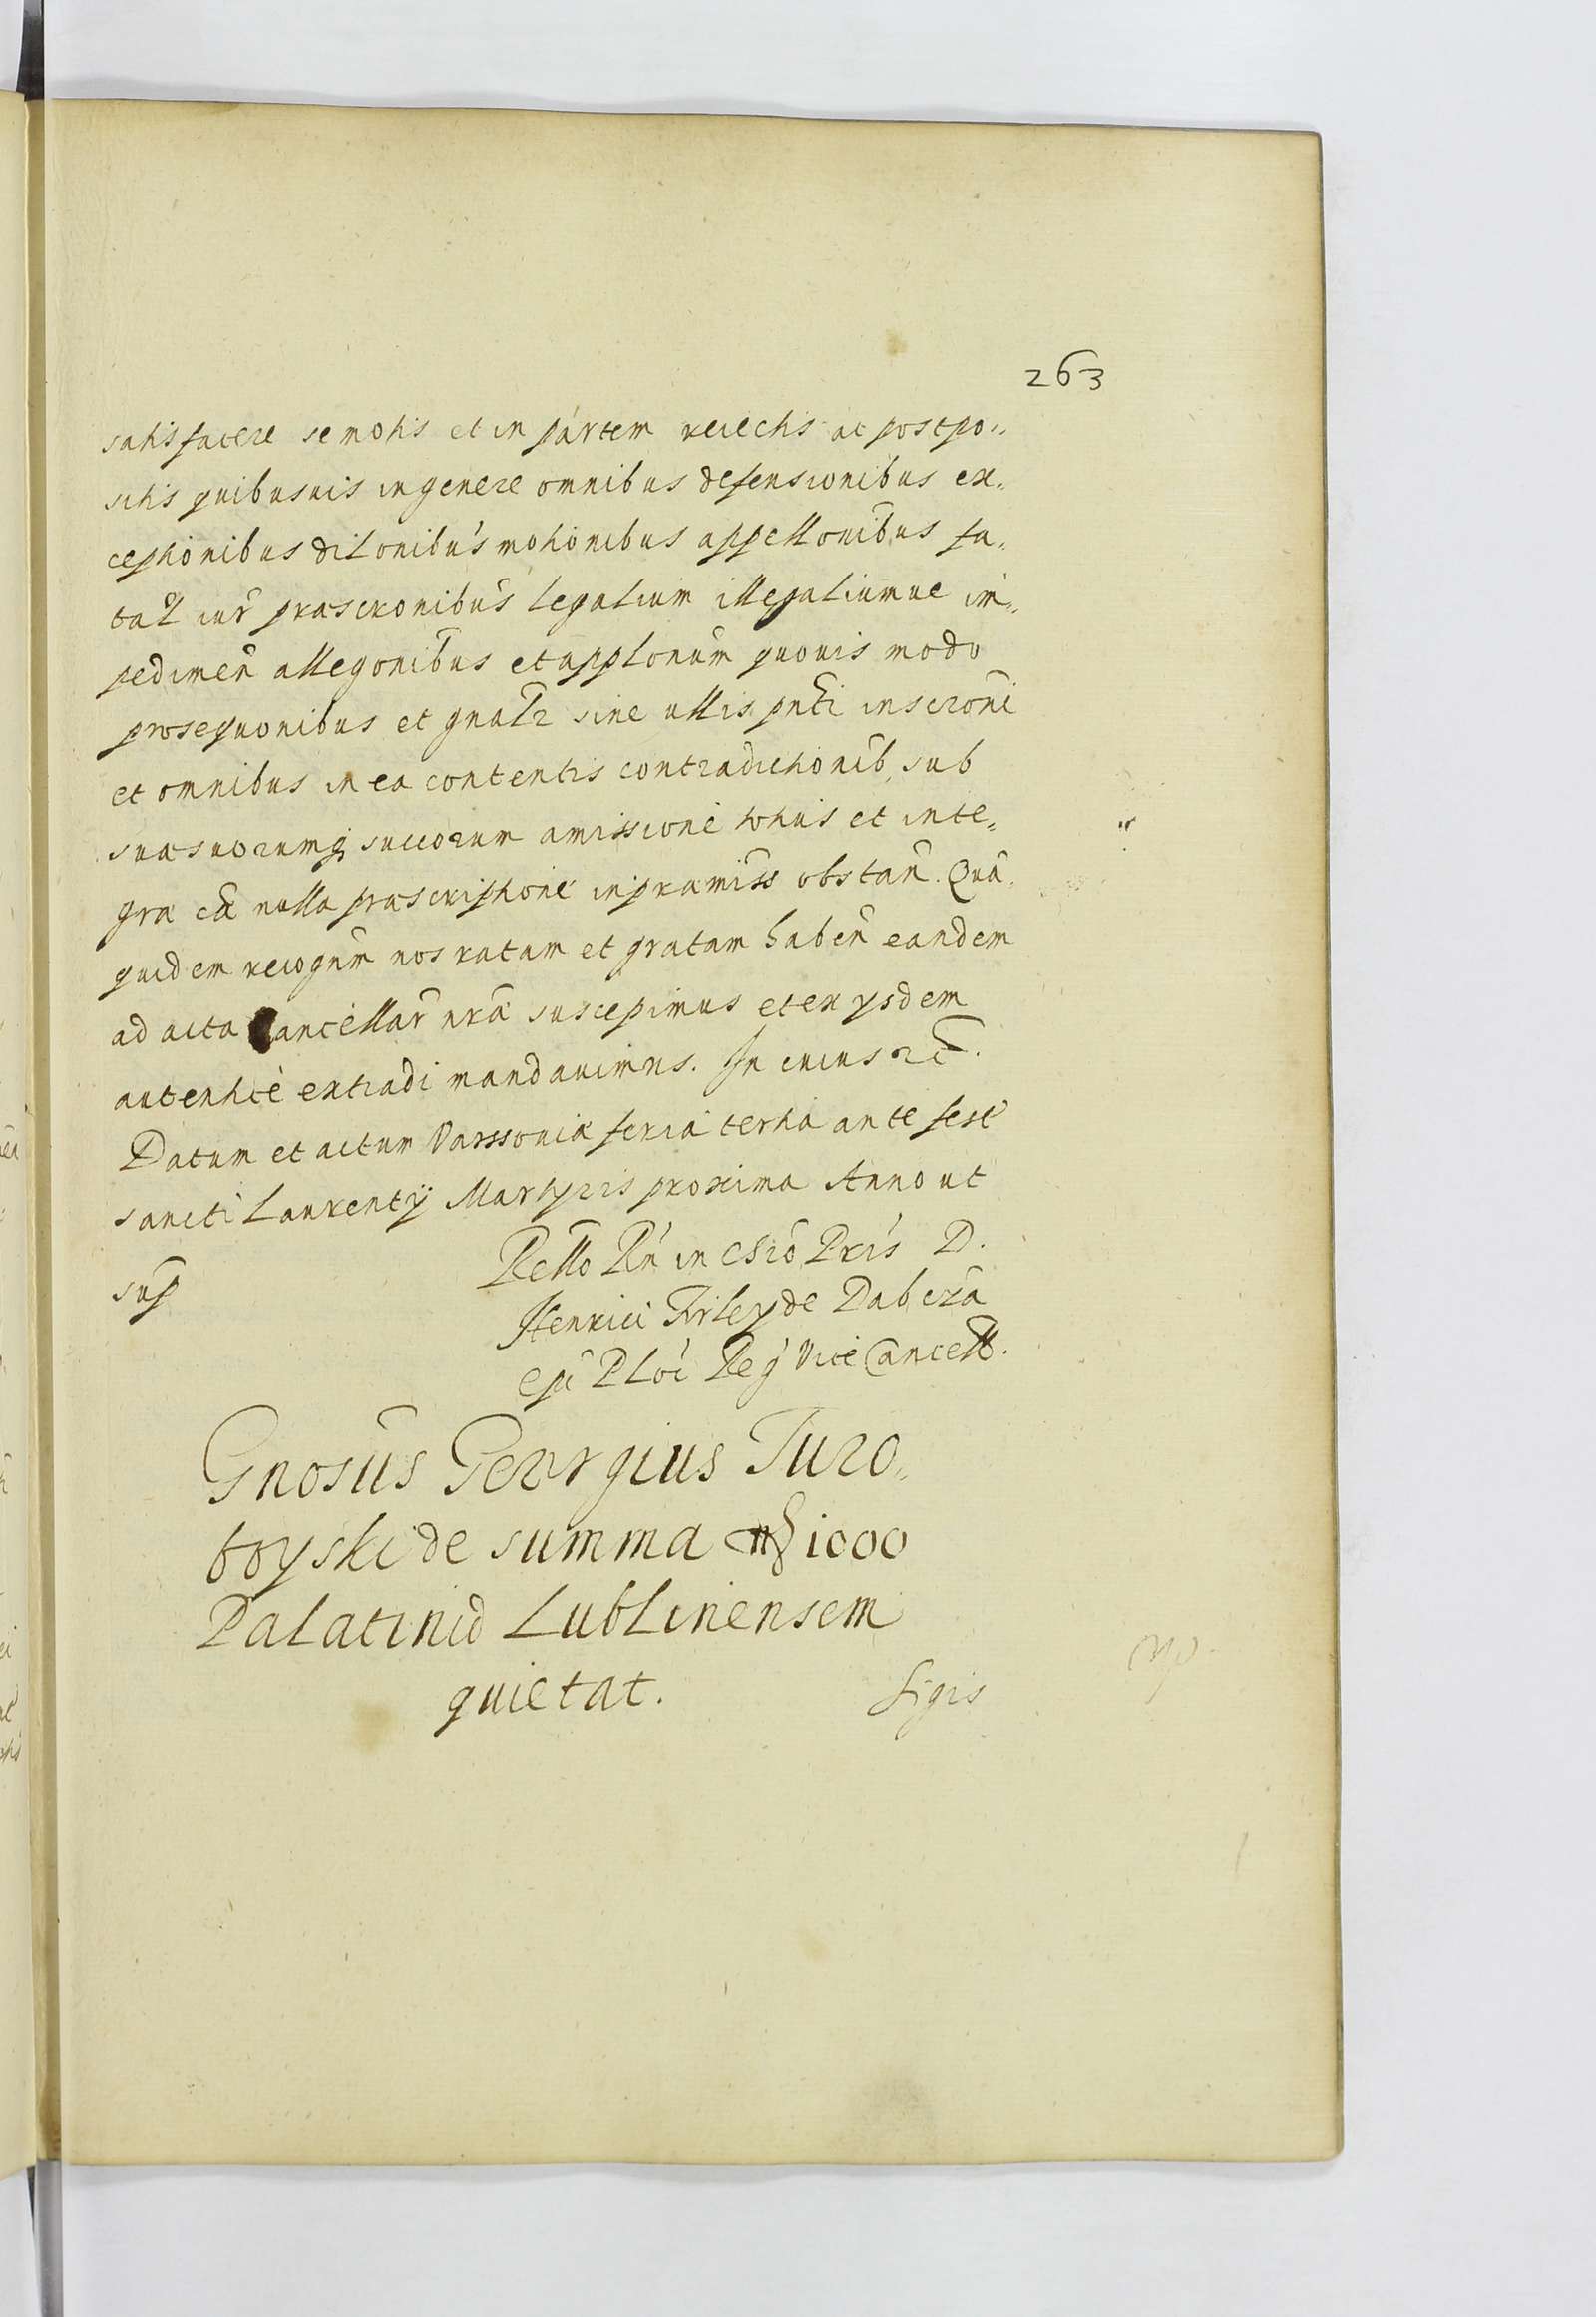 263
satisfacere semotis et in partem reiectis ac postpo„
sitis quibusuis in genere omnibus defensionibus ex„
ceptionibus dilonibus motionibus appellonibus fa„
tal iur præscronibus legalium illegaliumue im„
pedimen allegonibus et applonum quouis modo
prosequonibus et gnalr sine ullis pnti inscroni
et omnibus in ea contentis contradictionib sub
sua suorumq succorum amissione totius et inte„
gra ca nulla præscriptione in præmiss obstan. Qua„
quidem recognm nos ratam et gratam haben eandem
ad acta Cancellar nra suscepimus et ex ysdem
autentice extradi mandauimus. In cuius rei.
Datum et actum Varssouiæ feria tertia ante fest
sancti Laurentÿ Martyris proxima Anno ut
sup
Rello Rn in Chro Pris D.
Henrici Firley de Dabroua
Epi Ploc Reg Vice Cancell.
Gnosus Georgius Turo„
boyski de summa 1000
Palatinid Lublinensem
quietat.
Sigis